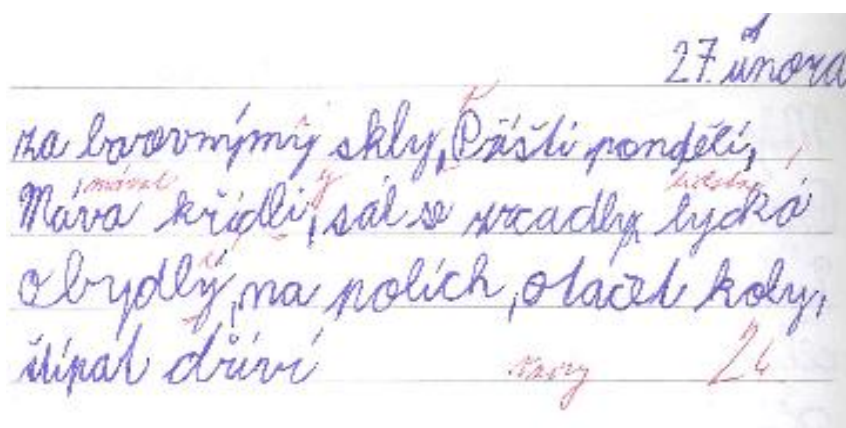 27. února
za barevnými skly, Příští pondělí,
mávat lidská
Máva křídli, sál se zrcadly lycká
obydlý, na polích, otáčet koly,
štípat dříví
24